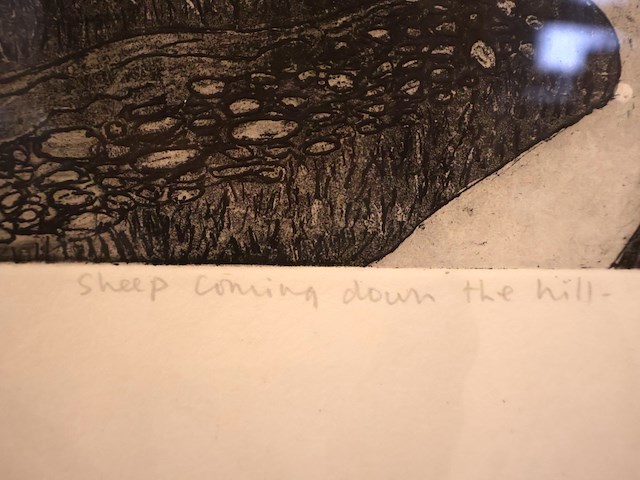 Sheep coming down the hill-